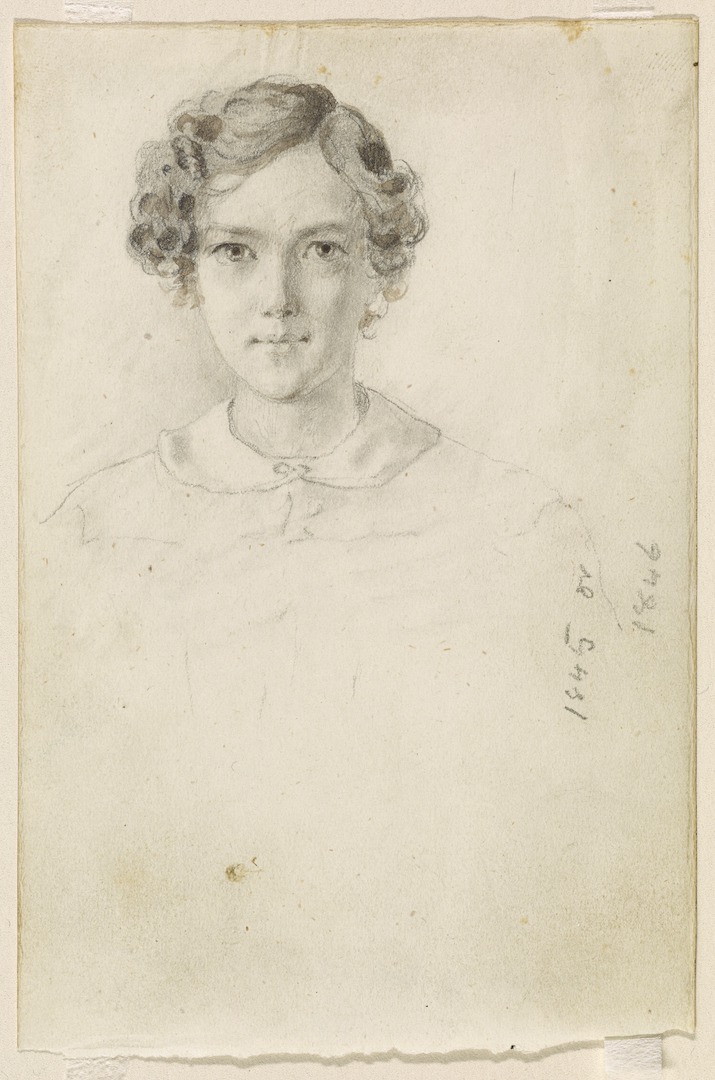 1845 or
1846